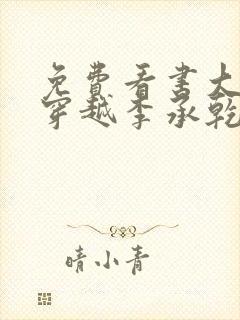 免費看書大
穿越李承乾
晴小青